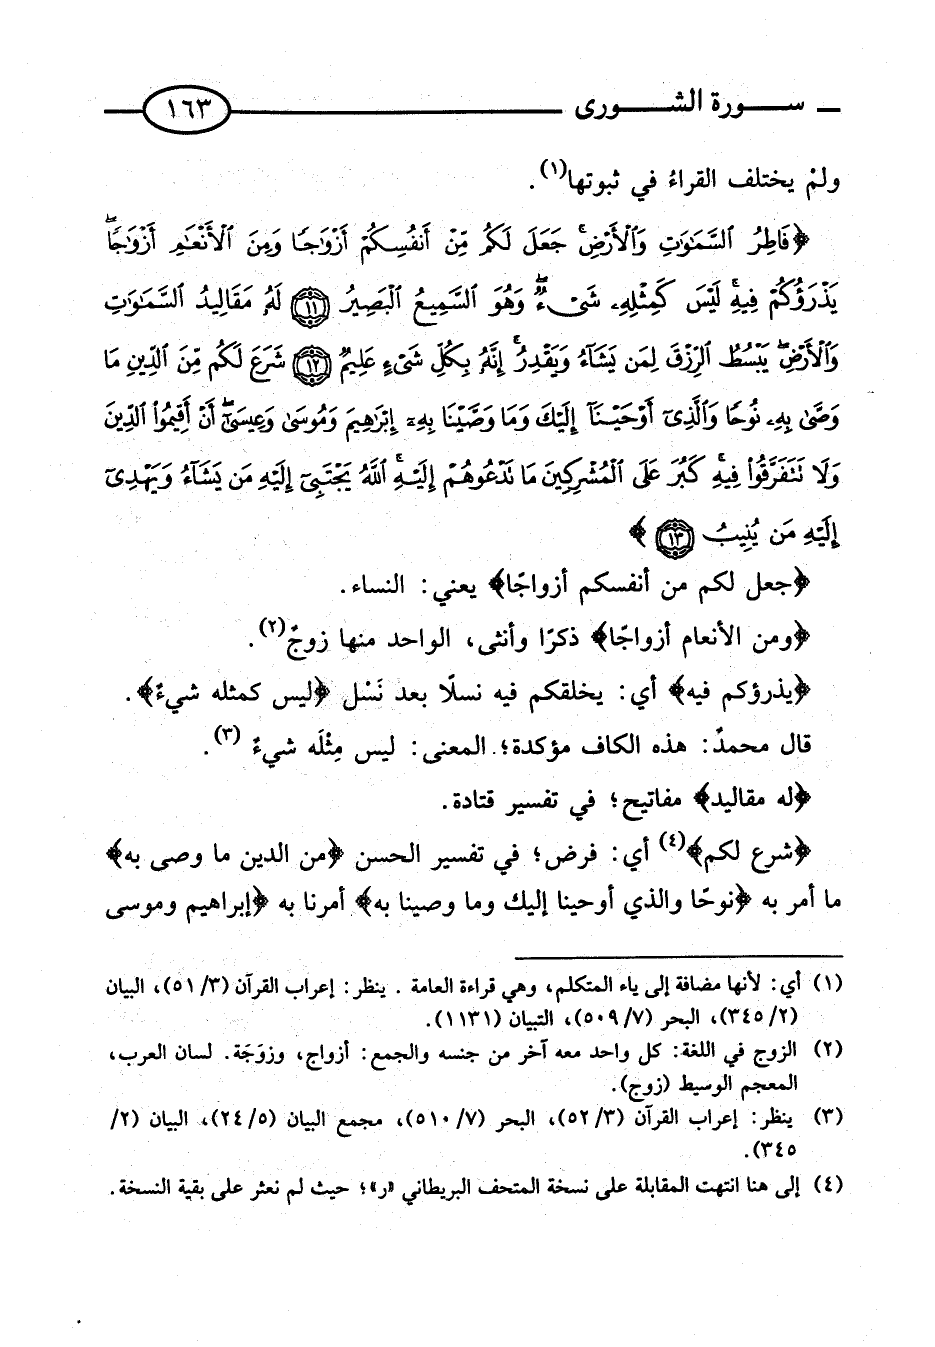 سورة الشورى ١٦٣
ولمْ يختلف القراءُ في ثبوتها(١).
﴿فَاطِرُ السَّمَٰوَٰتِ وَالْأَرْضِ ۚ جَعَلَ لَكُم مِّنْ أَنفُسِكُمْ أَزْوَٰجًا وَمِنَ الْأَنْعَٰمِ أَزْوَٰجًا ۖ
يَذْرَؤُكُمْ فِيهِ ۚ لَيْسَ كَمِثْلِهِۦ شَىْءٌ ۖ وَهُوَ السَّمِيعُ الْبَصِيرُ ١١ لَهُۥ مَقَالِيدُ السَّمَٰوَٰتِ
وَالْأَرْضِ ۖ يَبْسُطُ الرِّزْقَ لِمَن يَشَآءُ وَيَقْدِرُ ۚ إِنَّهُۥ بِكُلِّ شَىْءٍ عَلِيمٌ ١٢ شَرَعَ لَكُم مِّنَ الدِّينِ مَا
وَصَّىٰ بِهِۦ نُوحًا وَالَّذِىٓ أَوْحَيْنَآ إِلَيْكَ وَمَا وَصَّيْنَا بِهِۦٓ إِبْرَٰهِيمَ وَمُوسَىٰ وَعِيسَىٰٓ ۖ أَنْ أَقِيمُوا۟ الدِّينَ
وَلَا تَتَفَرَّقُوا۟ فِيهِ ۚ كَبُرَ عَلَى الْمُشْرِكِينَ مَا تَدْعُوهُمْ إِلَيْهِ ۚ اللَّهُ يَجْتَبِىٓ إِلَيْهِ مَن يَشَآءُ وَيَهْدِىٓ
إِلَيْهِ مَن يُنِيبُ ١٣﴾
﴿جعل لكم من أنفسكم أزواجًا﴾ يعني: النساء.
﴿ومن الأنعام أزواجًا﴾ ذكرًا وأنثى، الواحد منها زوجٌ(٢).
﴿يذرؤكم فيه﴾ أي: يخلقكم فيه نسلًا بعد نَسْل ﴿ليس كمثله شيءٌ﴾.
قال محمدٌ: هذه الكاف مؤكدة؛ المعنى: ليس مِثْلَه شيءٌ (٣).
﴿له مقاليد﴾ مفاتيح؛ في تفسير قتادة.
﴿شرع لكم﴾(٤) أي: فرض؛ في تفسير الحسن ﴿من الدين ما وصى به﴾
ما أمر به ﴿نوحًا والذي أوحينا إليك وما وصينا به﴾ أمرنا به ﴿إبراهيم وموسى
(١) أي: لأنها مضافة إلى ياء المتكلم، وهي قراءة العامة . ينظر: إعراب القرآن (٥١/٣)، البيان
(٣٤٥/٢)، البحر (٥٠٩/٧)، التبيان (١١٣١).
(٢) الزوج في اللغة: كل واحد معه آخر من جنسه والجمع: أزواج، وزوَجَة. لسان العرب،
المعجم الوسيط (زوج).
(٣) ينظر: إعراب القرآن (٥٢/٣)، البحر (٥١٠/٧)، مجمع البيان (٢٤/٥)، البيان (٢/
٣٤٥).
(٤) إلى هنا انتهت المقابلة على نسخة المتحف البريطاني «ر»؛ حيث لم نعثر على بقية النسخة.